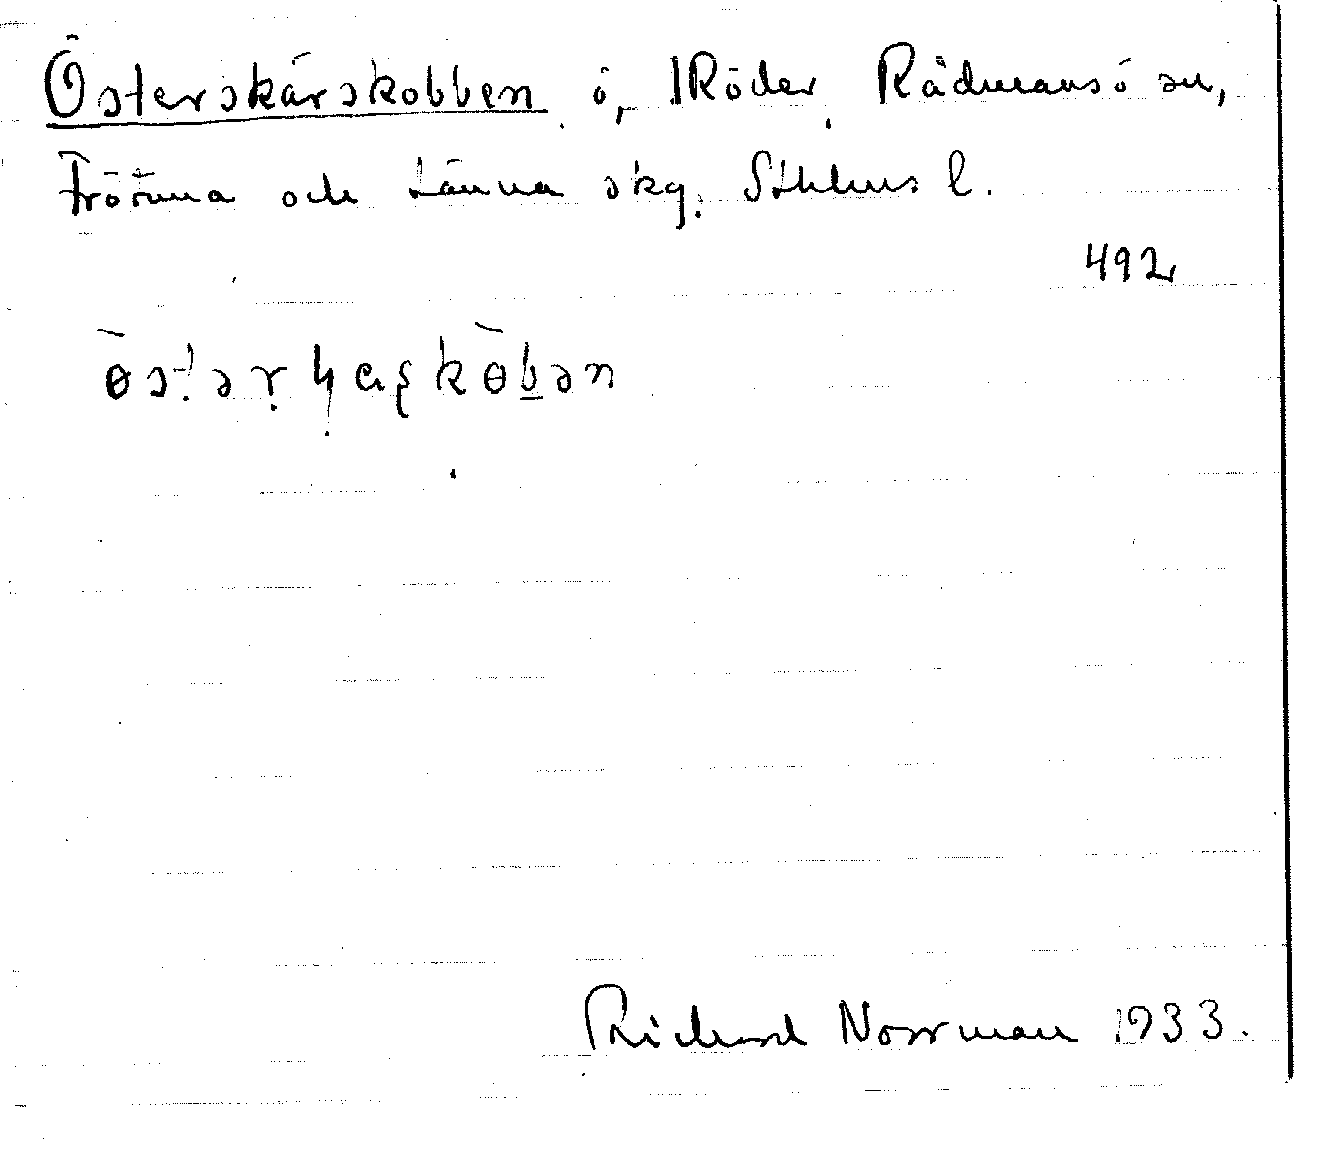 Österskärskobben ö, Röder, Rådmansö sn,
Frötuna och Länna skg. Sthlms l.
492
Richard Norrman 1933.